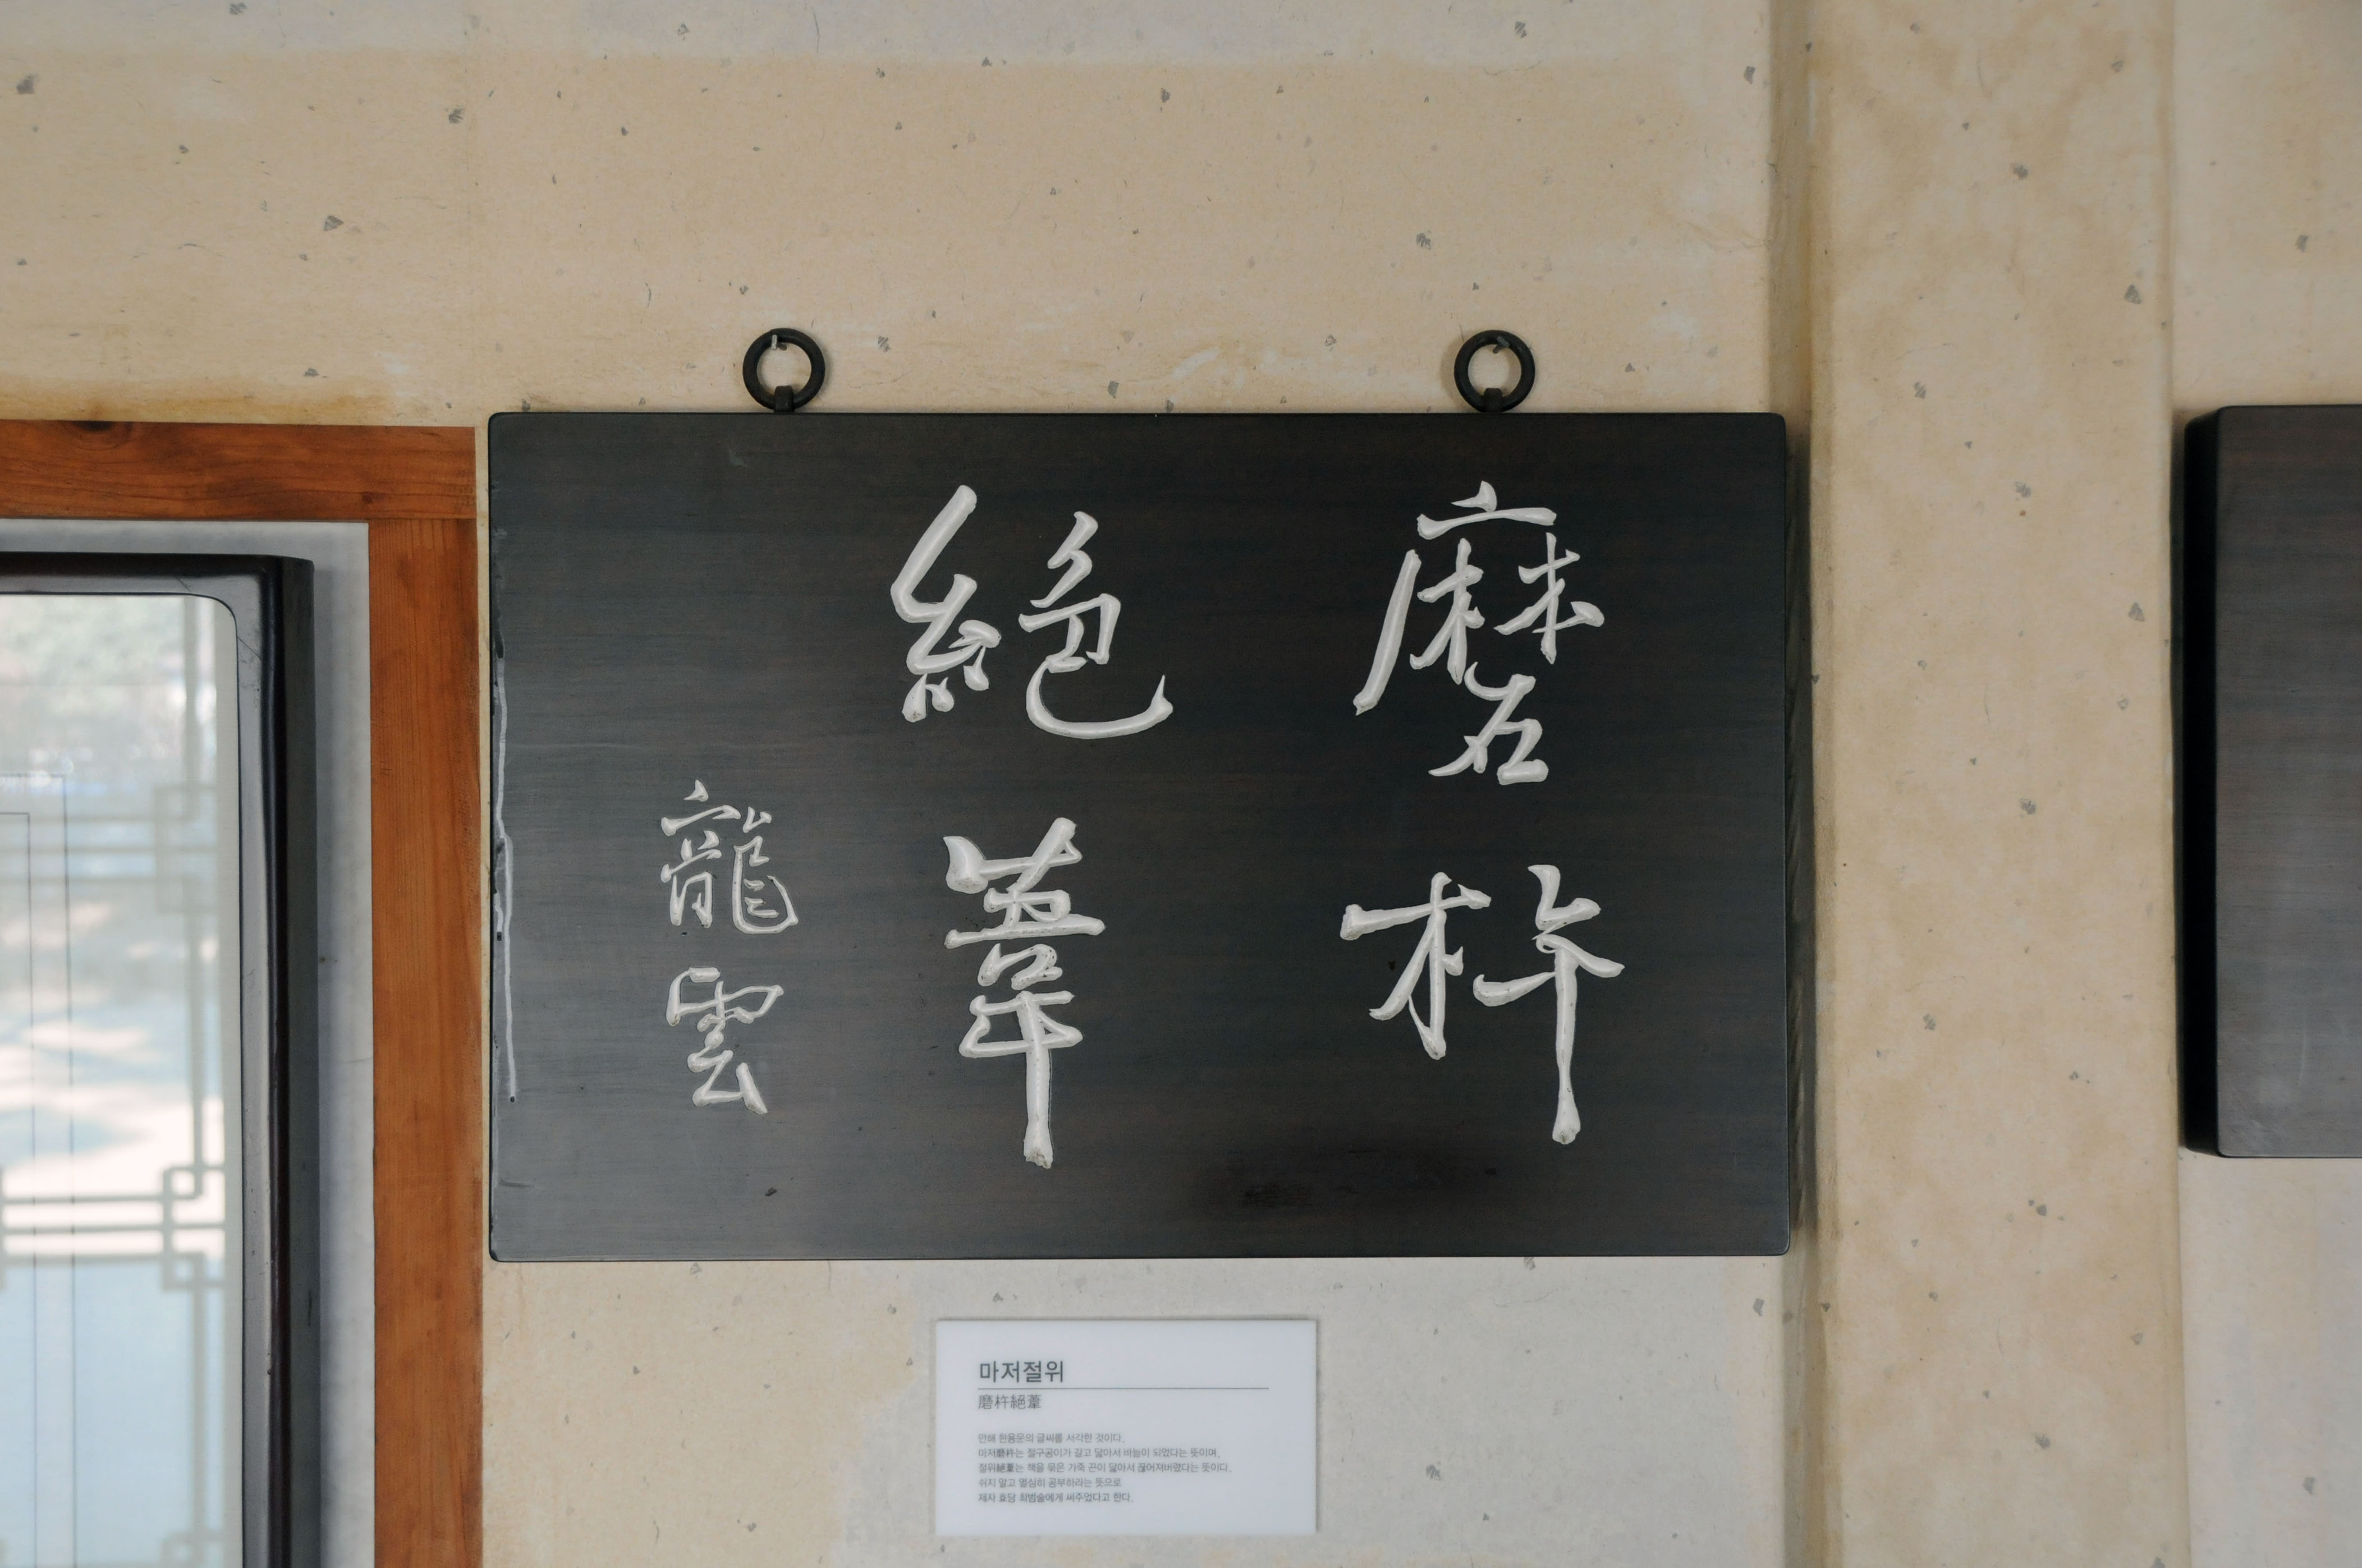 磨杵
絶葦
龍雲
마저절위
磨杵絕葦
만해 한용운의 글씨를 서각한 것이다.
마저磨杵는 절구공이가 길고 닳아서 바늘이 되었다는 뜻이며,
절위絕葦는 책을 묶은 가죽 끈이 닳아서 끊어져버렸다는 뜻이다.
쉬지 말고 열심히 공부하라는 뜻으로
제자 효당 최범술에게 써주었다고 한다.